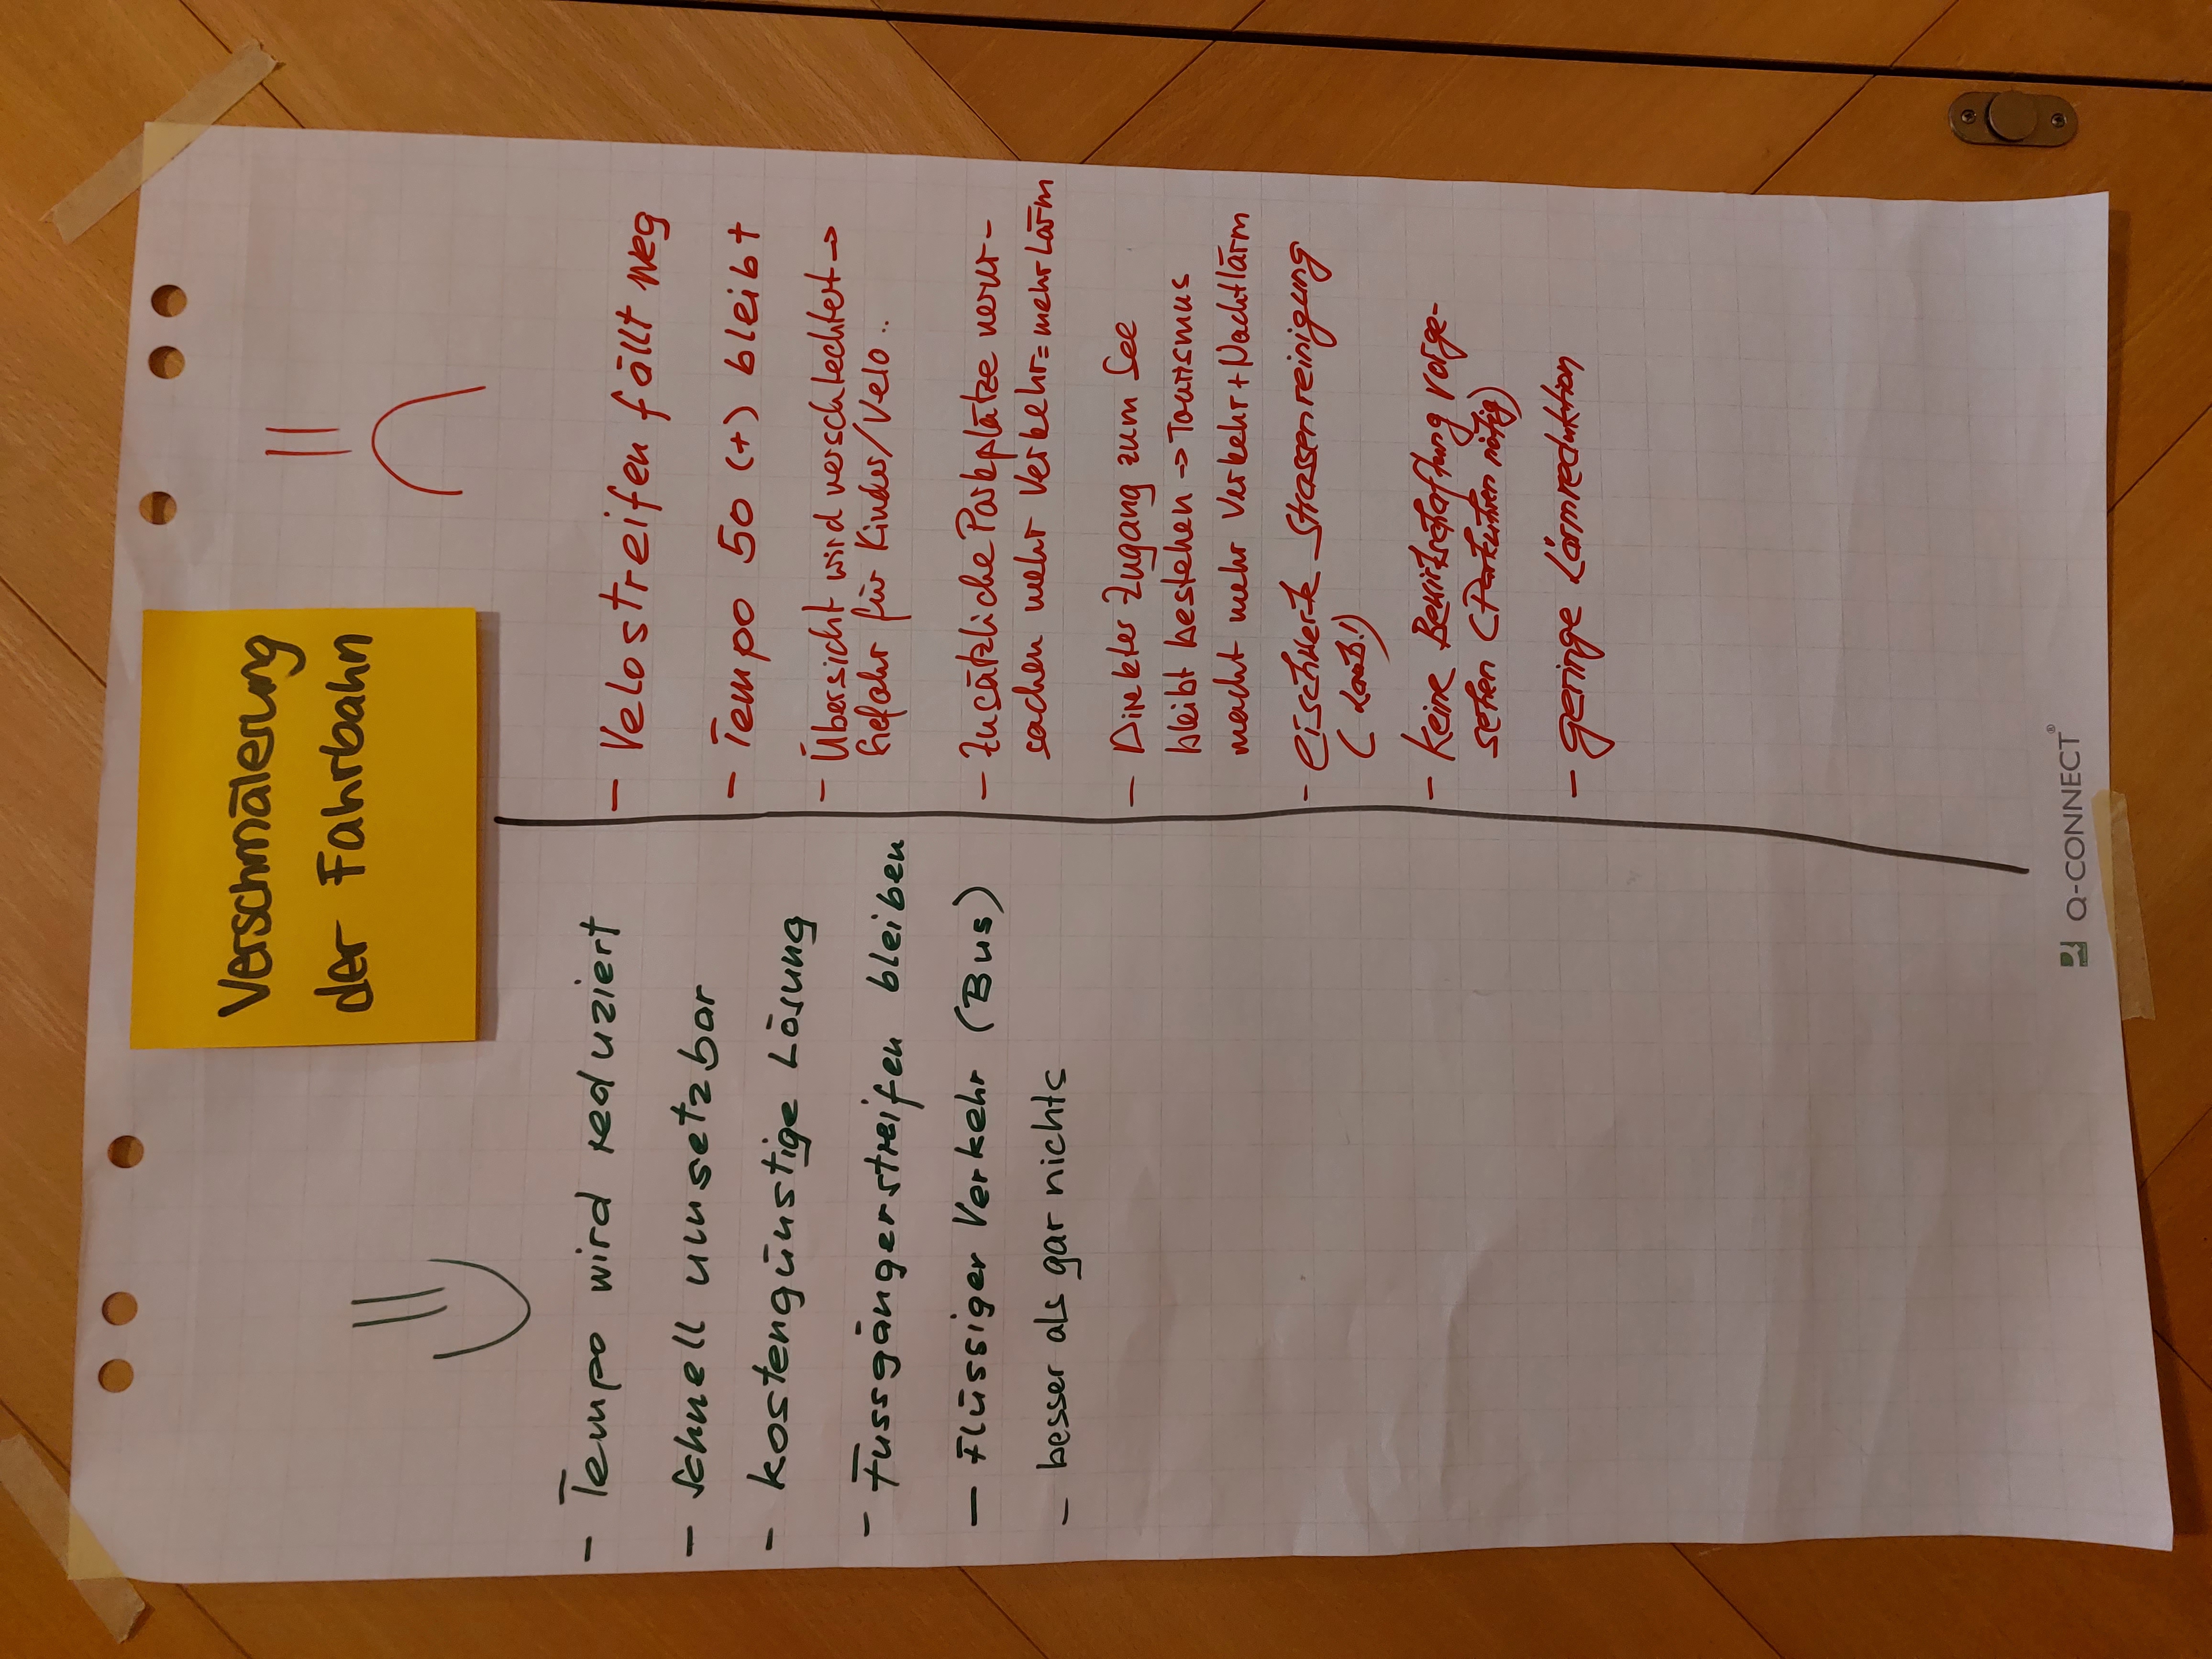 Verschmälerung
der Fahrbahn
- Tempo wird reduziert
- Schnell umsetzbar
- kostengünstige Lösung
- Fussgängerstreifen bleiben
- Flüssiger Verkehr (Bus)
- besser als gar nichts
- Velostreifen fällt weg
- Tempo 50 (+) bleibt
- Übersicht wird verschlechtert →
Gefahr für Kinder/Velo..
- Zusätzliche Parkplätze verur-
sachen mehr Verkehr = mehr Lärm
- Direkter Zugang zum See
bleibt bestehen → Tourismus
macht mehr Verkehr + Nachtlärm
- erschwerte Strassenreinigung
(Laub!)
- keine Bewirtschaftung vorge-
sehen (Parkuhren nötig)
- geringe Lärmreduktion
Q-CONNECT®